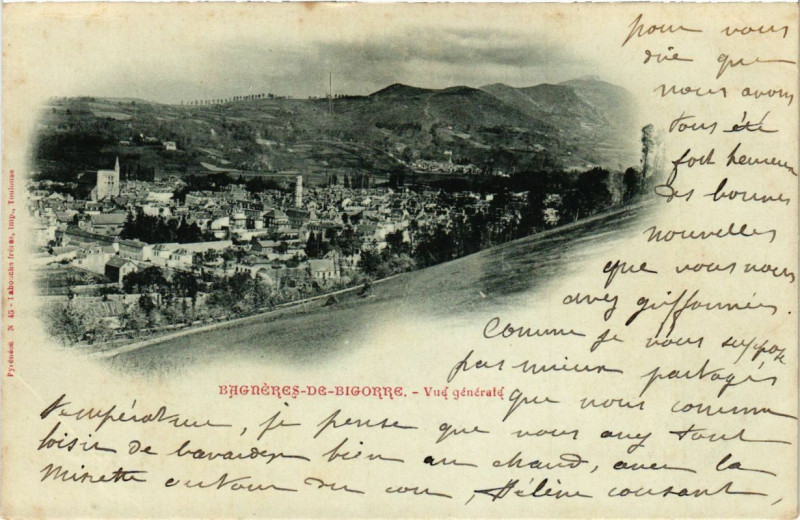 pour vous
dire que
nous avons
tous été
fort heureux
des bonnes
nouvelles
que vous nous
avez griffonnées.
Comme je vous suppose
pas mieux partagés
que nous comme
température, je pense que vous avez tout
loisir de bavarder bien au chaud, avec la
Minette autour du cou, Hélène cousant,
BAGNÈRES-DE-BIGORRE. - Vue générale
Pyrénées N 45 - Labouche frères, imp., Toulouse